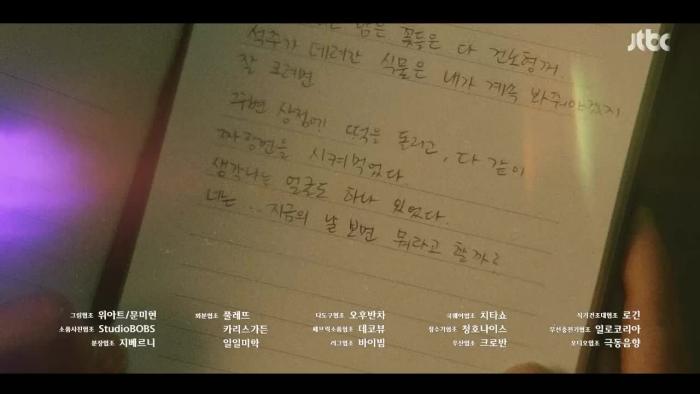 jtbc
밤은 꽃들은 다 건노형꺼.
석주가 데려간 식물은 내가 계속 봐줘야겠지
잘 크려면
주변 상점에 떡을 돌리고, 다 같이
짜장면을 시켜먹었다.
생각나는 얼굴도 하나 있었다.
너는 ... 지금의 날 보면 뭐라고 할까?
그림협조 위아트/문미현 화분협조 풀레뜨 다도구협조 오후반차 국궤어협조 치타쇼 식기건조대협조 로긴
소품사진협조 StudioBOBS 카리스가든 패브릭소품협조 데코뷰 정수기협조 청호나이스 무선충전기협조 일로코리아
분장협조 지베르니 일일미학 러그협조 바이빔 우산협조 크로반 오디오협조 극동음향